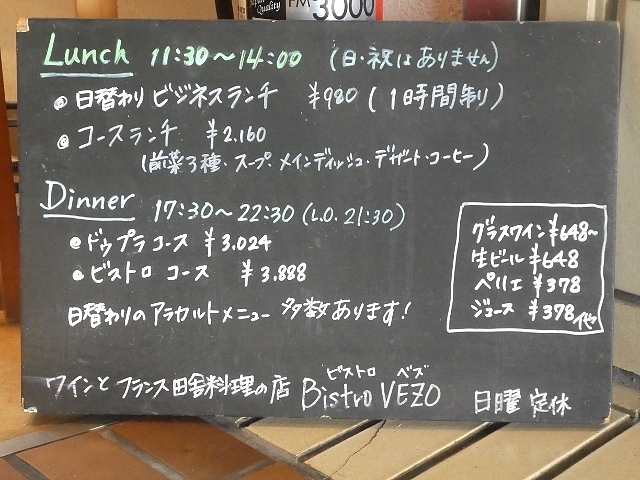 Japan Quality
FM-3000
Lunch 11:30〜14:00 (日・祝はありません)
@ 日替わり ビジネスランチ ¥980 (1時間制り)
@ コースランチ ¥2.160
(前菜3種・スープ、メインディッシュ・デザート・コーヒー)
Dinner 17:30〜22:30 (L.O. 21:30)
@ ドゥプラ コース ¥3.024
@ ビストロ コース ¥3.888
日替わりのアラカルトメニュー 多数あります!
グラスワイン ¥648〜
生ビール ¥648
ペリエ ¥378
ジュース ¥378 イセ
ワインと フランス田舎料理の店 Bistro VEZO
ビストロ ベズ
日曜 定休